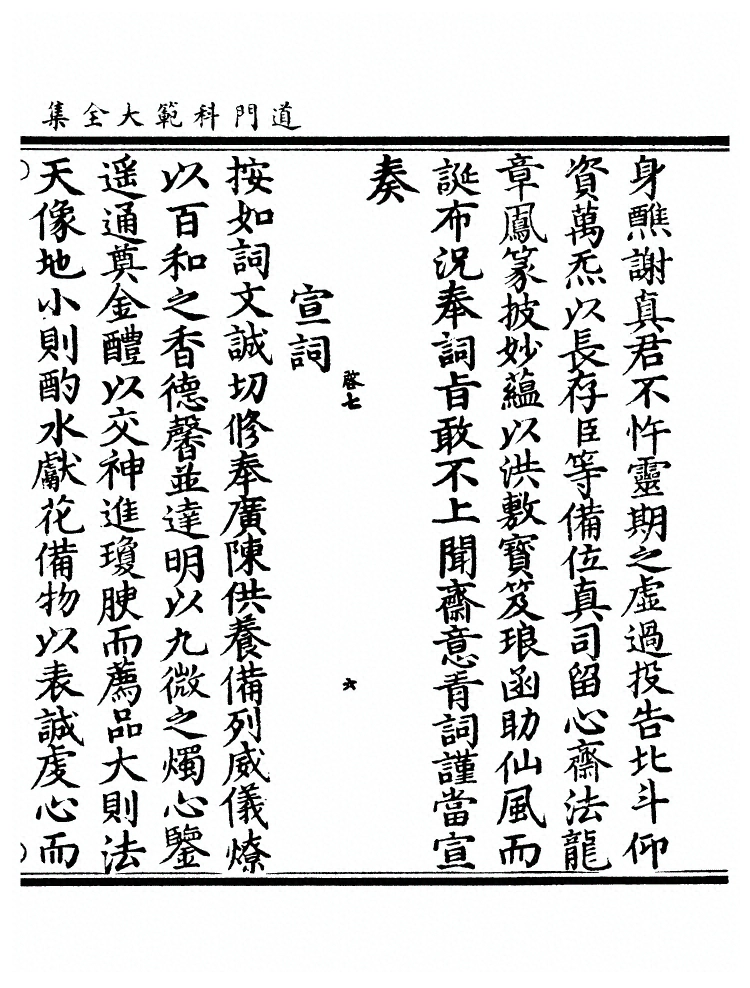 道門科範大全集
身醮謝真君不忤靈期之虛過投告北斗仰
資萬炁以長存臣等備位真司留心齋法龍
章鳳篆披妙蘊以洪敷寶笈琅函助仙風而
誕布況奉詞旨敢不上聞齋意青詞謹當宣
奏
啓七
六
宣詞
按如詞文誠切修奉廣陳供養備列威儀燎
以百和之香德馨並達明以九微之燭心鑒
遥通奠金醴以交神進瓊腴而薦品大則法
天像地小則酌水獻花備物以表誠虔心而